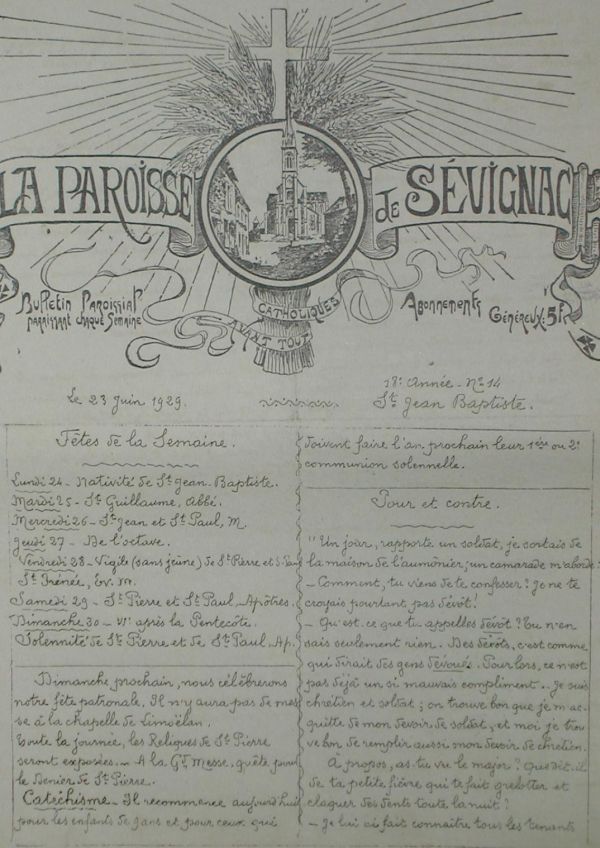 LA PAROISSE de SÉVIGNAC
CATHOLIQUES
AVANT TOUT
Bulletin Paroissial
paraissant chaque Semaine
Abonnements
Généreux: 5F
Le 23 Juin 1929.
18e Année - No 14
St Jean Baptiste.
Fêtes de la Semaine.
Lundi 24 - Nativité de St Jean-Baptiste.
Mardi 25 - St Guillaume, Abbé.
Mercredi 26 - St Jean et St Paul, M.
Jeudi 27 - De l'octave.
Vendredi 28 - Vigile (sans jeûne) de St Pierre et S. Paul
St Irénée, Ev. M.
Samedi 29 - St Pierre et St Paul, Apôtres.
Dimanche 30 - VIe après la Pentecôte.
Solennité de St Pierre et de St Paul, Ap.
Dimanche prochain, nous célébrerons
notre fête patronale. Il n'y aura pas de mes
se à la chapelle de Limoëlan.
Toute la journée, les Reliques de St Pierre
seront exposées. - A la Gd Messe, quête pour
le Denier de St Pierre.
Catéchisme - Il recommence aujourd'hui
pour les enfants de 9 ans et pour ceux qui
doivent faire l'an prochain leur 1ère ou 2e
communion solennelle.
Pour et contre.
"Un jour, rapporte un soldat, je sortais de
la maison de l'aumônier; un camarade m'aborde:
- Comment, tu viens de te confesser? Je ne te
croyais pourtant pas dévôt!
- Qu'est-ce que tu appelles dévôt? Tu n'en
sais seulement rien. Des dévôts, c'est comme
qui dirait des gens dévoués. Pour lors, ce n'est
pas déjà un si mauvais compliment... Je suis
chrétien et soldat; on trouve bon que je m'ac-
quitte de mon devoir de soldat, et moi je trou
ve bon de remplir aussi mon devoir de chrétien.
A propos, as-tu vu le major? Que dit-il
de ta petite fièvre qui te fait grelotter et
claquer des dents toute la nuit?
- Je lui ai fait connaître tous les tenants